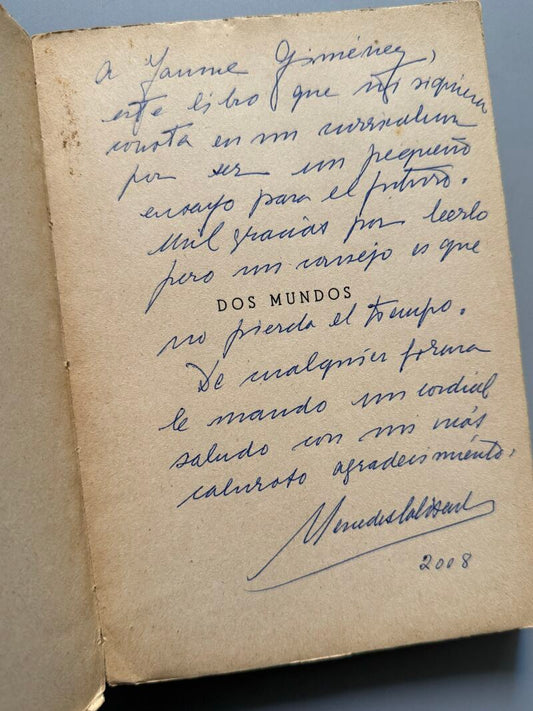 A Jaume Giménez,
este libro que ni siquiera
consta en mi curriculum
por ser un pequeño
ensayo para el futuro.
Mil gracias por leerlo
pero mi consejo es que
DOS MUNDOS
no pierda el tiempo.
De cualquier forma
le mando un cordial
saludo con mi más
caluroso agradecimiento.
Mercedes Salisachs
2008